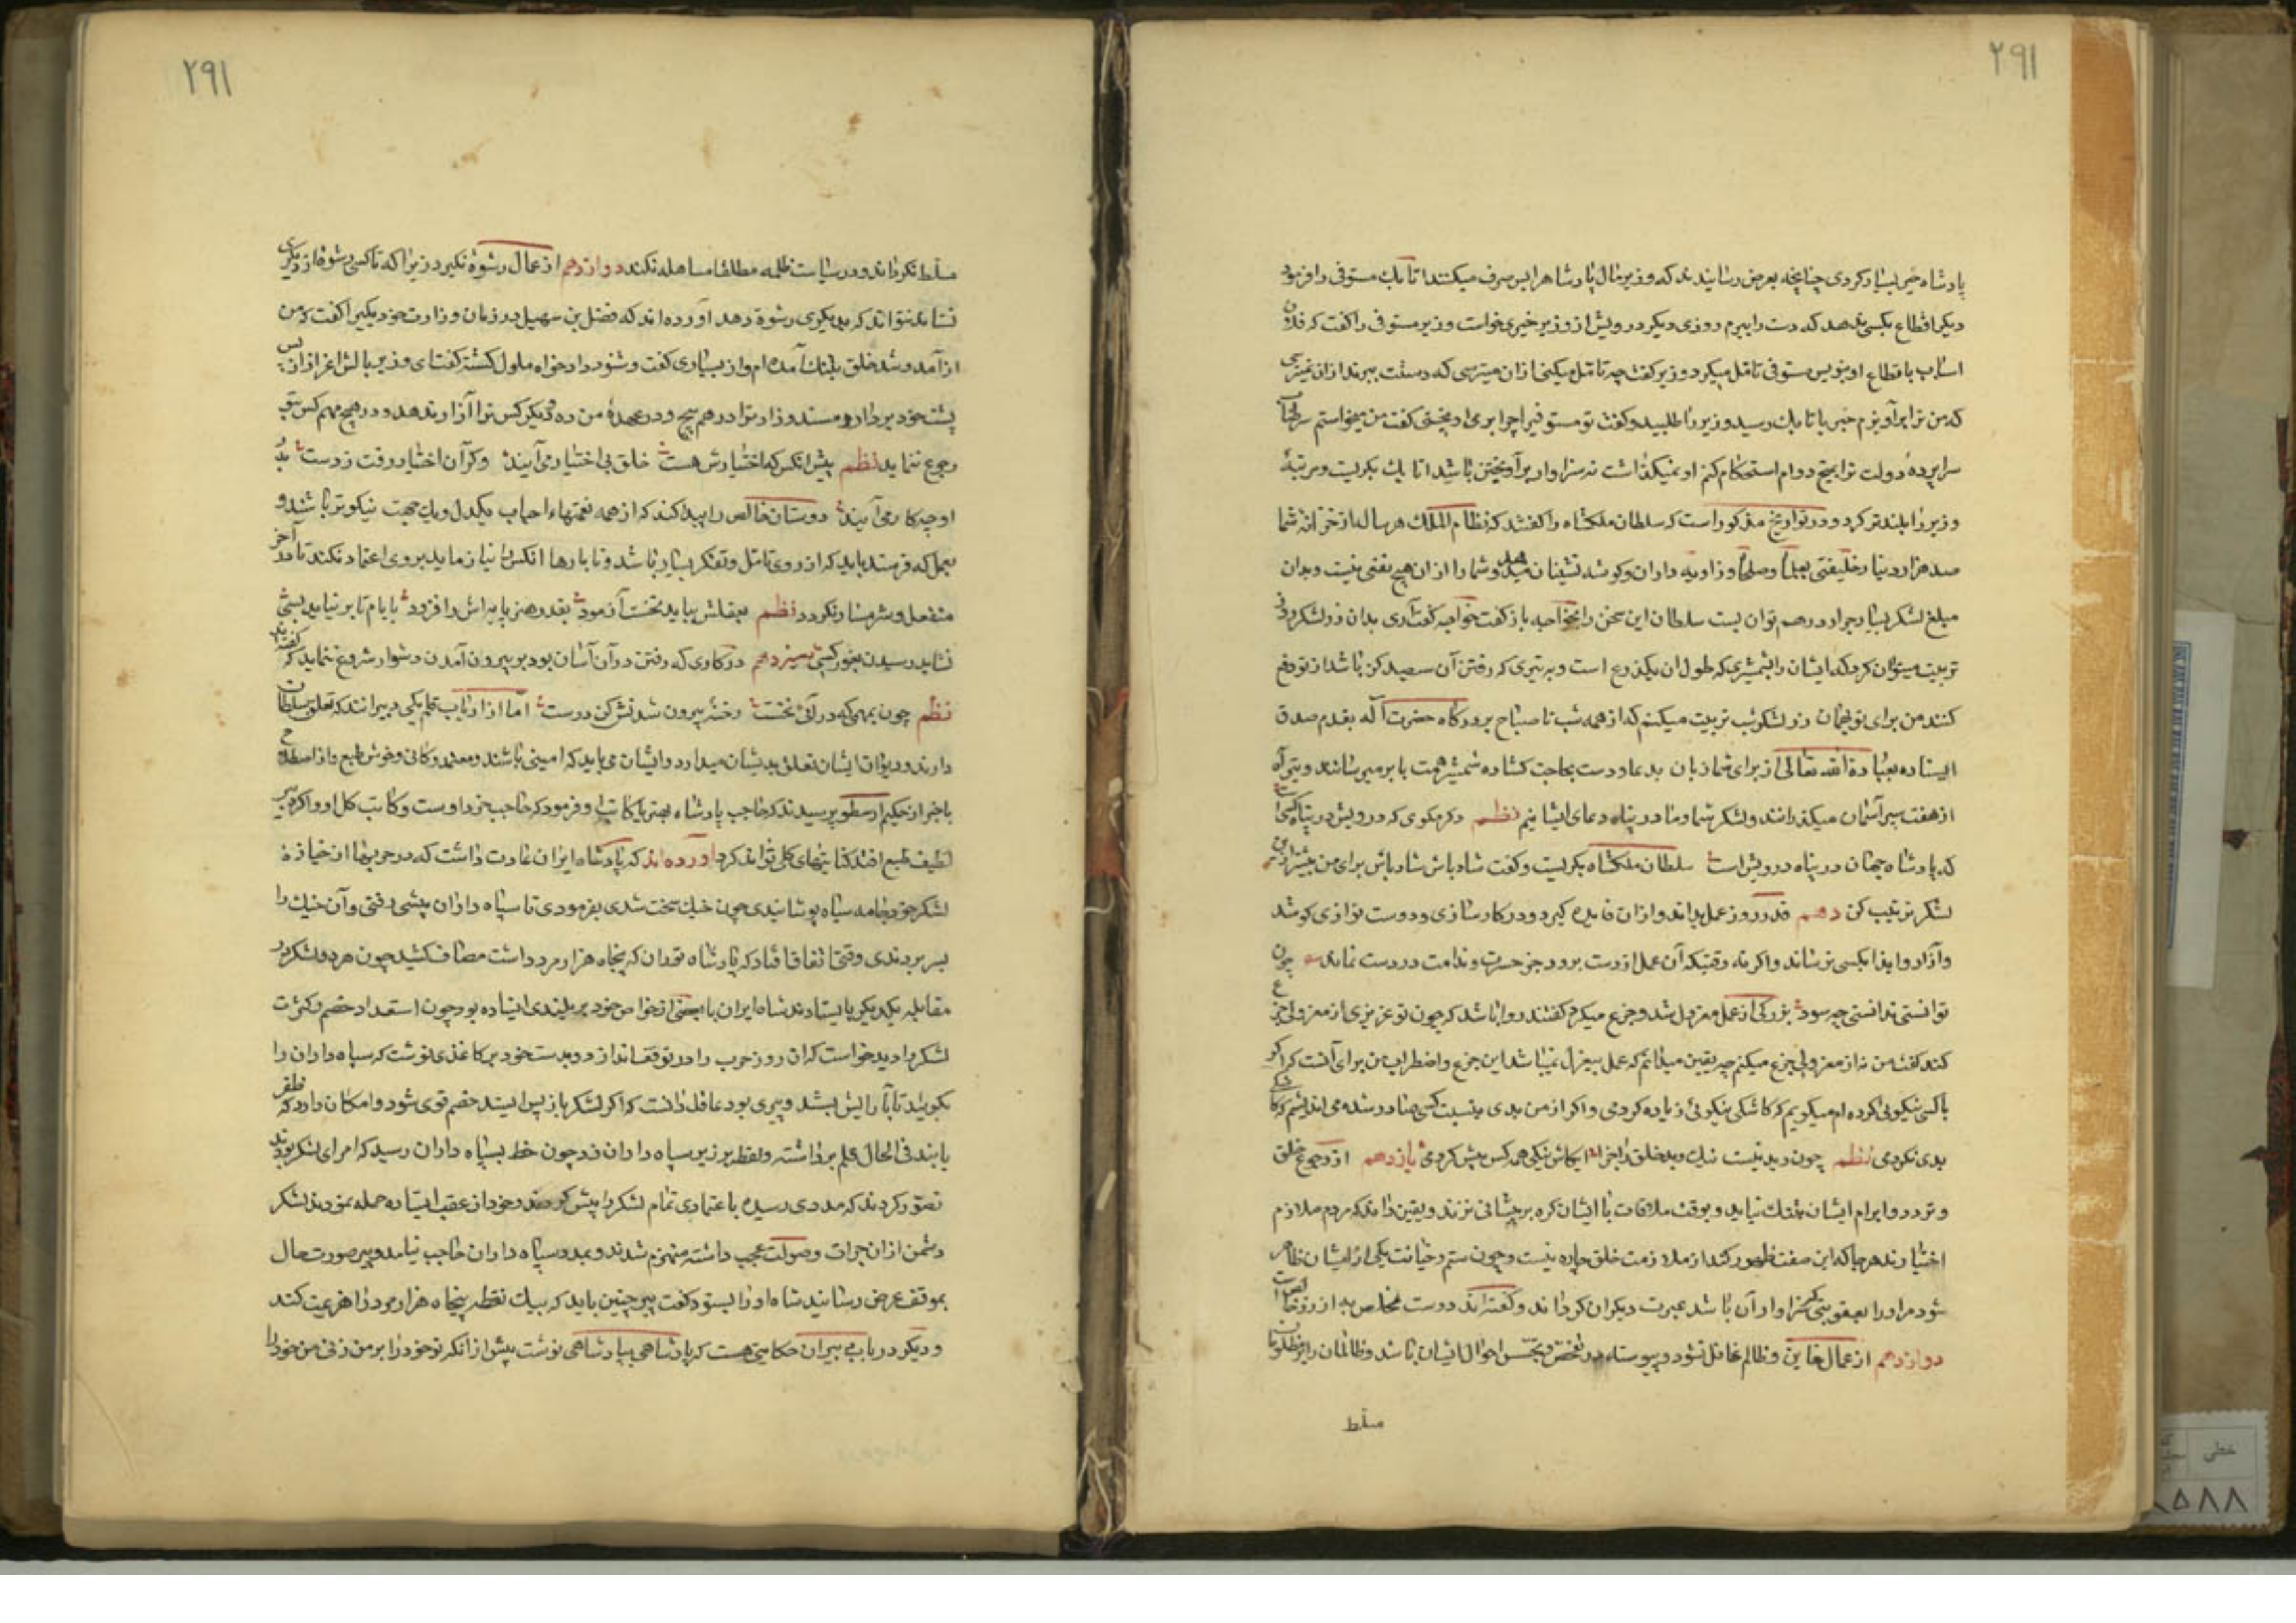 ۲۹۱
پادشاه خیر بسیار کردی چنانچه بعرض رسانیدند که وزیر مال پادشاه را بس صرف میکند اتابک مستوفی را فرمود
دیگر اقطاع بکسی ندهد که دست را ببرم روزی دیگر درویش از وزیر خیری خواست وزیر مستوفی را گفت که فلان
اسباب باقطاع او بنویس مستوفی تامل میکرد وزیر گفت چه تامل میکنی ازان میترسی که دستت ببرند ازان نمیترسی
که من ترا برآویزم خبر باتابک رسید وزیر را طلبید و گفت تو مستوفی را چرا برمی اویختی گفت من میخواستم
سراپرده دولت ترا بمیخ دوام استحکام کنم او نمیگذاشت نه سزاوار برآویختن باشد اتابک بگریست و مرتبهٔ
وزیر را بلندتر کرد و در تواریخ مذکور است که سلطان ملکشاه را گفتند که نظام الملک هر سال از خزانه شما
صد هزار دینار بعلما و صلحا و زاویه داران و گوشه نشینان میدهد و شما را ازان هیچ نفعی نیست و بدان
مبلغ لشکر بسیار جرار درهم توان بست سلطان این سخن را بخواجه باز گفت خواجه گفت آری بدان زر لشکر
تربیت میتوان کرد که ایشان را بشمشیری که طول ان یکذرع است و به تیری که رفتن آن سیصد گز باشد از تو دفع
کنند من برای تو بهمان زر لشکر شب تربیت میکنم که از همه شب تا صباح بر درگاه حضرت آله بقدم صدق
ایستاده بعبادة الله تعالی از برای شما زبان بدعا و دست بحاجت گشاده شمشیر همت بابر میرسانند و تیر آه
از هفت سپر آسمان میگذرانند و لشکر شما و ما در پناه دعای ایشانیم نظم دگر مگوی که درویش در پناه کسی است
که پادشاه جهان در پناه درویش است سلطان ملکشاه بگریست و گفت شاد باش شاد باش برای من بیشتر ازین
لشکر ترتیب کن دهم قدر روز عمل بداند و ازان فایده گیرد و در کارسازی و دوست نوازی کوشد
و آزار و ایذا بکسی نرساند و اگر نه وقتیکه آن عمل از دست برود جز حسرت و ندامت در دست نماند ع چون
توانستی ندانستی چه سود بزرگی از عمل معزول شد و جزع میکرد گفتند روا باشد که چون تو عزیزی از معزولی جزع
کند گفت من نه از معزولی جزع میکنم چه یقین میدانم که عمل بیعزل نمیباشد این جزع و اضطراب من برای آنست که اگر
باکسی نیکوئی کرده ام میگویم که کاشکی نیکوئی زیاده کردمی و اگر از من بدی بنسبت کسی صادر شده می اندیشم که کاشکی
بدی نکردمی نظم چون دید نیست نیک و بد خلق را جزا ایکاش نیکی همه کس بیش کردمی یازدهم از رجوع خلق
و تردد و ابرام ایشان بتنگ نیاید و بوقت ملاقات با ایشان گره بر پیشانی نزند و یقین داند که مردم ملازم
اختیارند هر جا که این صفت ظهور کند از ملازمت خلق چاره نیست و چون ستم و خیانت یکی از ایشان ظاهر
شود مر او را بعقوبتی که سزاوار آن باشد عبرت دیگران گرداند و گفته اند دوست مخلص به از زر خالص است
دوازدهم از عمال خاین و ظالم غافل نشود و پیوسته در تفحص و تجسس احوال ایشان باشد و ظالمان را بر مظلومان
مسلط
۲۹۱
مسلط نگرداند و در سیاست ظلمه مطلقا مساهله نکند دوازدهم از عمال رشوة نگیرد زیرا که تا کسی رشوه از دیگری
نستاند نتواند که بدیگری رشوة دهد آورده اند که فضل بن سهیل در زمان وزارت خود یکیرا گفت که من
از آمد و شد خلق بتنگ آمده ام و از بسیاری گفت و شنود دادخواه ملول گشته گفت ای وزیر بالش اعزاز از پس
پشت خود بردار و مسند وزارت را درهم پیچ و در عهدهٔ من که دیگر کس ترا آزار ندهد و در هیچ مهم کس بتو
رجوع ننماید نظم پیش انکس که اختیارش هست خلق بی اختیار می آیند وگر آن اختیار رفت ز دست بد
او چه کار می آیند دوستان خالص را پیدا کند که از همه نعمتهاء احباب یکدل و یک جهت نیکوتر باشند و
بعمل که فرستد باید که از روی تامل و تفکر بسیار باشد و تا بارها انکس را نیازماید بر وی اعتماد نکند تا آخر
منفعل و شرمسار نگردد نظم بعقلش بباید نخست آزمود بقدر هنر پایه اش را فزود بایام تا بر نیاید بسی
نشاید رسیدن بغور کسی سیزدهم در کاری که رفتن در آن آسان بود بر بیرون آمدن دشوار شروع ننماید که گفته اند
نظم چون بمهمی که در آئی نخست رخنهٔ بیرون شدنش کن درست امّا از ارباب قلم یکی دبیرانند که تعلق بسلطان
دارند و دیوان ایشان تعلق بدیشان میدارد و ایشان می باید که امینی باشند و معتمد و کافی و خوش طبع و از اصطلاح
باخبر از حکیم ارسطو پرسیدند که حاجب پادشاه بهتر یا کاتب او فرمود که حاجب جزو اوست و کاتب کل او و اگر دبیر
لطیف طبع افتد کفایتهای کلی تواند کرد آورده اند که پادشاه ایران عادت داشت که در حربها از خیازهٔ
لشکر خود جامه سیاه پوشانیدی چون جنگ سخت شدی بفرمودی تا سیاه داران پیشی رفتی و آن جنگ را
بسر بردندی وقتی اتفاقا افتاد که پادشاه توران که پنجاه هزار مرد داشت مصاف کشید چون هر دو لشکر در
مقابله یکدیگر بایستادند شاه ایران با بعضی از خواص خود بر بلندی ایستاده بود چون استعداد خصم و کثرت
لشکر را دید خواست که ان روز حرب را در توقف اندازد و بدست خود بر کاغذی نوشت که سپاه داران را
بگویند تا باز ایستند و پیری بود عاقل دانست که اگر لشکر باز پس ایستد خصم قوی شود و امکان دارد که ظفر
یابند فی الحال قلم برداشته و نقطه بر زیر سپاه داران زد چون خط بسپاه داران رسید که امرای لشکر بودند
تصور کردند که مددی رسیده باعتمادی تمام لشکر را پیش کردند و خود از عقب ایستاده حمله نمودند لشکر
دشمن ازان جرات و صولت عجب داشته منهزم شدند و بمدد سپاه داران حاجت نیامد دبیر صورت حال
بموقف عرض رسانید شاه او را بستود و گفت دبیر چنین باید که بیک نقطه پنجاه هزار مرد را هزیمت کند
و دیگر در باب دبیران حکایتی هست که پادشاهی بپادشاهی نوشت پیش از انکه تو خود را بر من زنی من خود را